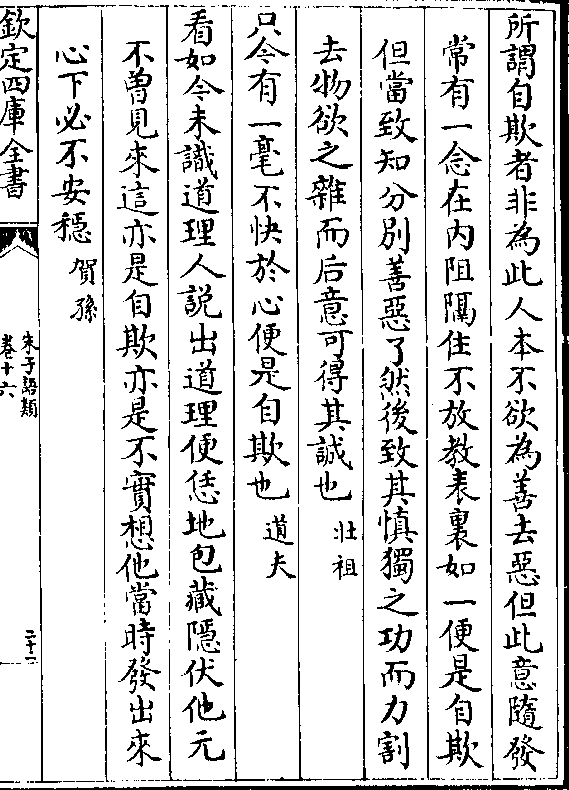 所謂自欺者非為此人本不欲為善去惡但此意隨發
常有一念在内阻隔住不放教表裏如一便是自欺
但當致知分别善惡了然後致其慎獨之功而力割
去物欲之雜而后意可得其誠也 壯祖
只今有一毫不快於心便是自欺也 道夫
看如今未識道理人説出道理便恁地包藏隱伏他元
不曽見來這亦是自欺亦是不實想他當時發出來
心下必不安穩 賀孫
欽定四庫全書
朱子語類
卷十六
二十二